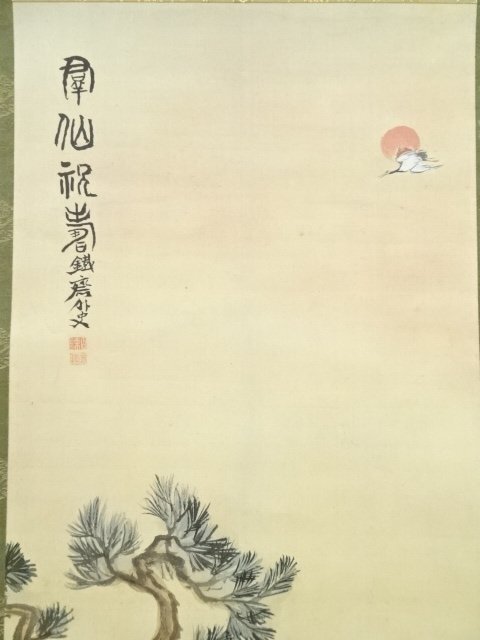 群仙祝壽鐵齋外史